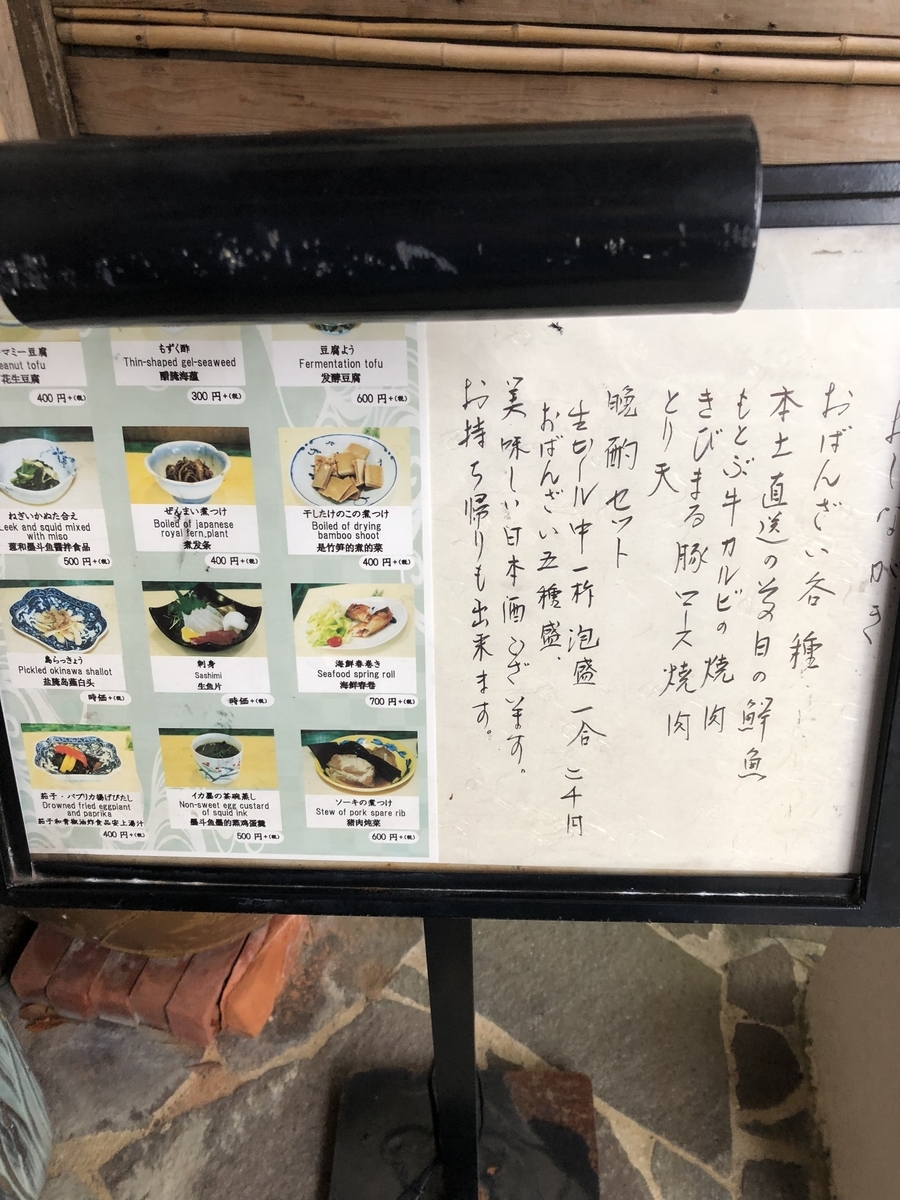 マミー豆腐
eanut tofu
花生豆腐
400 円+(税)
もずく酢
Thin-shaped gel-seaweed
醋腌海蕴
300 円+(税)
豆腐よう
Fermentation tofu
发酵豆腐
600 円+(税)
ねぎいかぬた合え
Leek and squid mixed
with miso
葱和墨斗鱼酱拌食品
500 円+(税)
ぜんまい煮つけ
Boiled of japanese
royal fern,plant
煮发条
400 円+(税)
干したけのこの煮つけ
Boiled of drying
bamboo shoot
是竹笋的煮的菜
400 円+(税)
島らっきょう
Pickled okinawa shallot
盐腌岛薤白头
時価+(税)
刺身
Sashimi
生鱼片
時価+(税)
海鮮春巻き
Seafood spring roll
海鲜春卷
700 円+(税)
茄子・パプリカ揚げびたし
Drowned fried eggplant
and paprika
茄子和青椒油炸食品安上汤汁
400 円+(税)
イカ墨の茶碗蒸し
Non-sweet egg custard
of squid ink
墨斗鱼墨的蒸鸡蛋羹
500 円+(税)
ソーキの煮つけ
Stew of pork spare rib
猪肉炖菜
600 円+(税)
おしながき
おばんざい各種
本土直送の当日の鮮魚
もとぶ牛カルビの焼肉
きびまる豚ロース焼肉
とり天
晩酌セット
生ビール中一杯泡盛一合 二千円
おばんざい五種盛、
美味しい日本酒ございます。
お持ち帰りも出来ます。